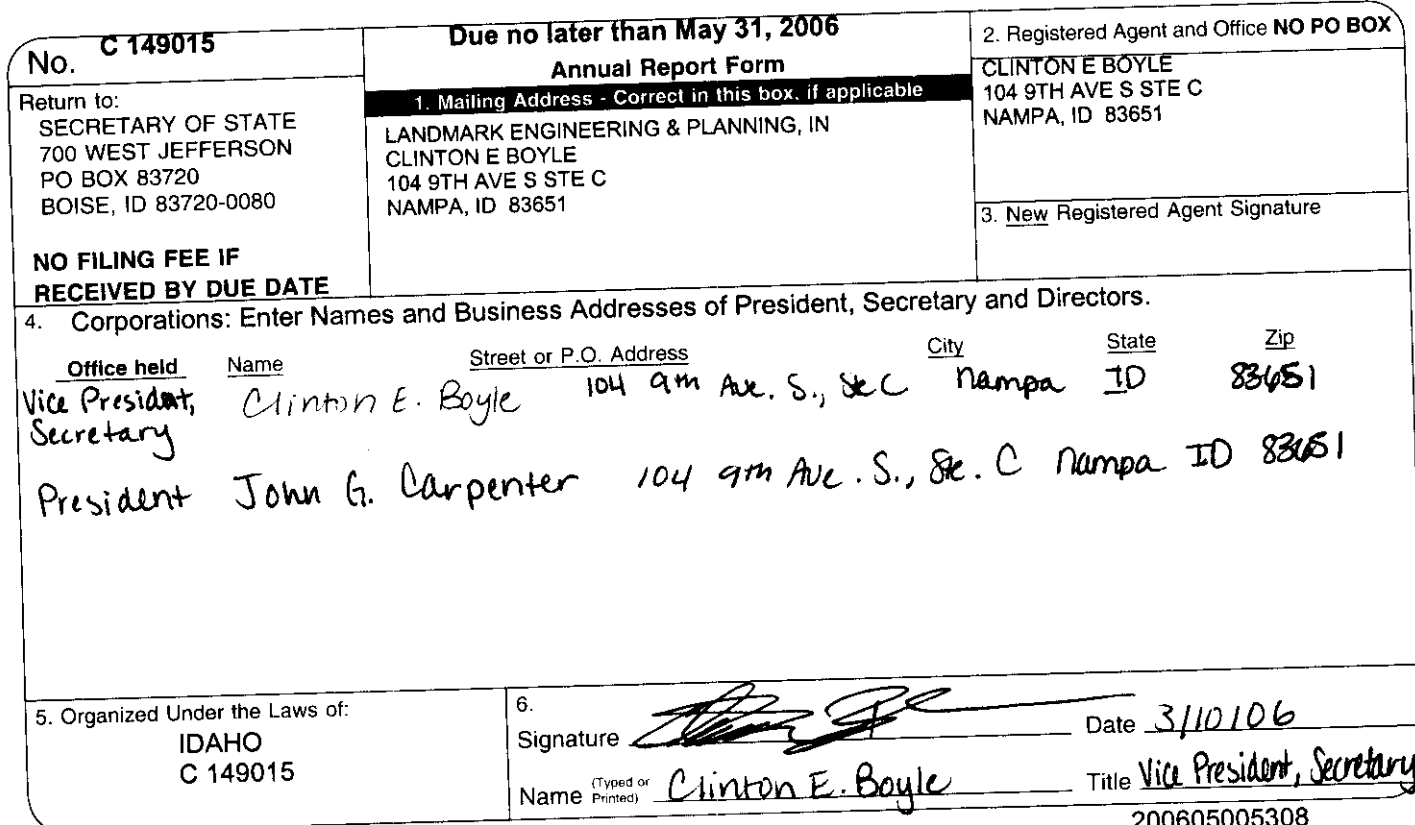 No. C 149015
Return to:
SECRETARY OF STATE
700 WEST JEFFERSON
PO BOX 83720
BOISE, ID 83720-0080
NO FILING FEE IF
RECEIVED BY DUE DATE
Due no later than May 31, 2006
Annual Report Form
1. Mailing Address - Correct in this box, if applicable
LANDMARK ENGINEERING & PLANNING, IN
CLINTON E BOYLE
104 9TH AVE S STE C
NAMPA, ID 83651
2. Registered Agent and Office NO PO BOX
CLINTON E BOYLE
104 9TH AVE S STE C
NAMPA, ID 83651
3. New Registered Agent Signature
4. Corporations: Enter Names and Business Addresses of President, Secretary and Directors.
Office held Name Street or P.O. Address City State Zip
Vice President, Clinton E. Boyle 104 9th Ave. S., Ste C Nampa ID 83651
Secretary
President John G. Carpenter 104 9th Ave. S., Ste. C Nampa ID 83651
5. Organized Under the Laws of:
IDAHO
C 149015
6.
Signature Date 3/10/06
Name (Typed or Printed) Clinton E. Boyle Title Vice President, Secretary
200605005308